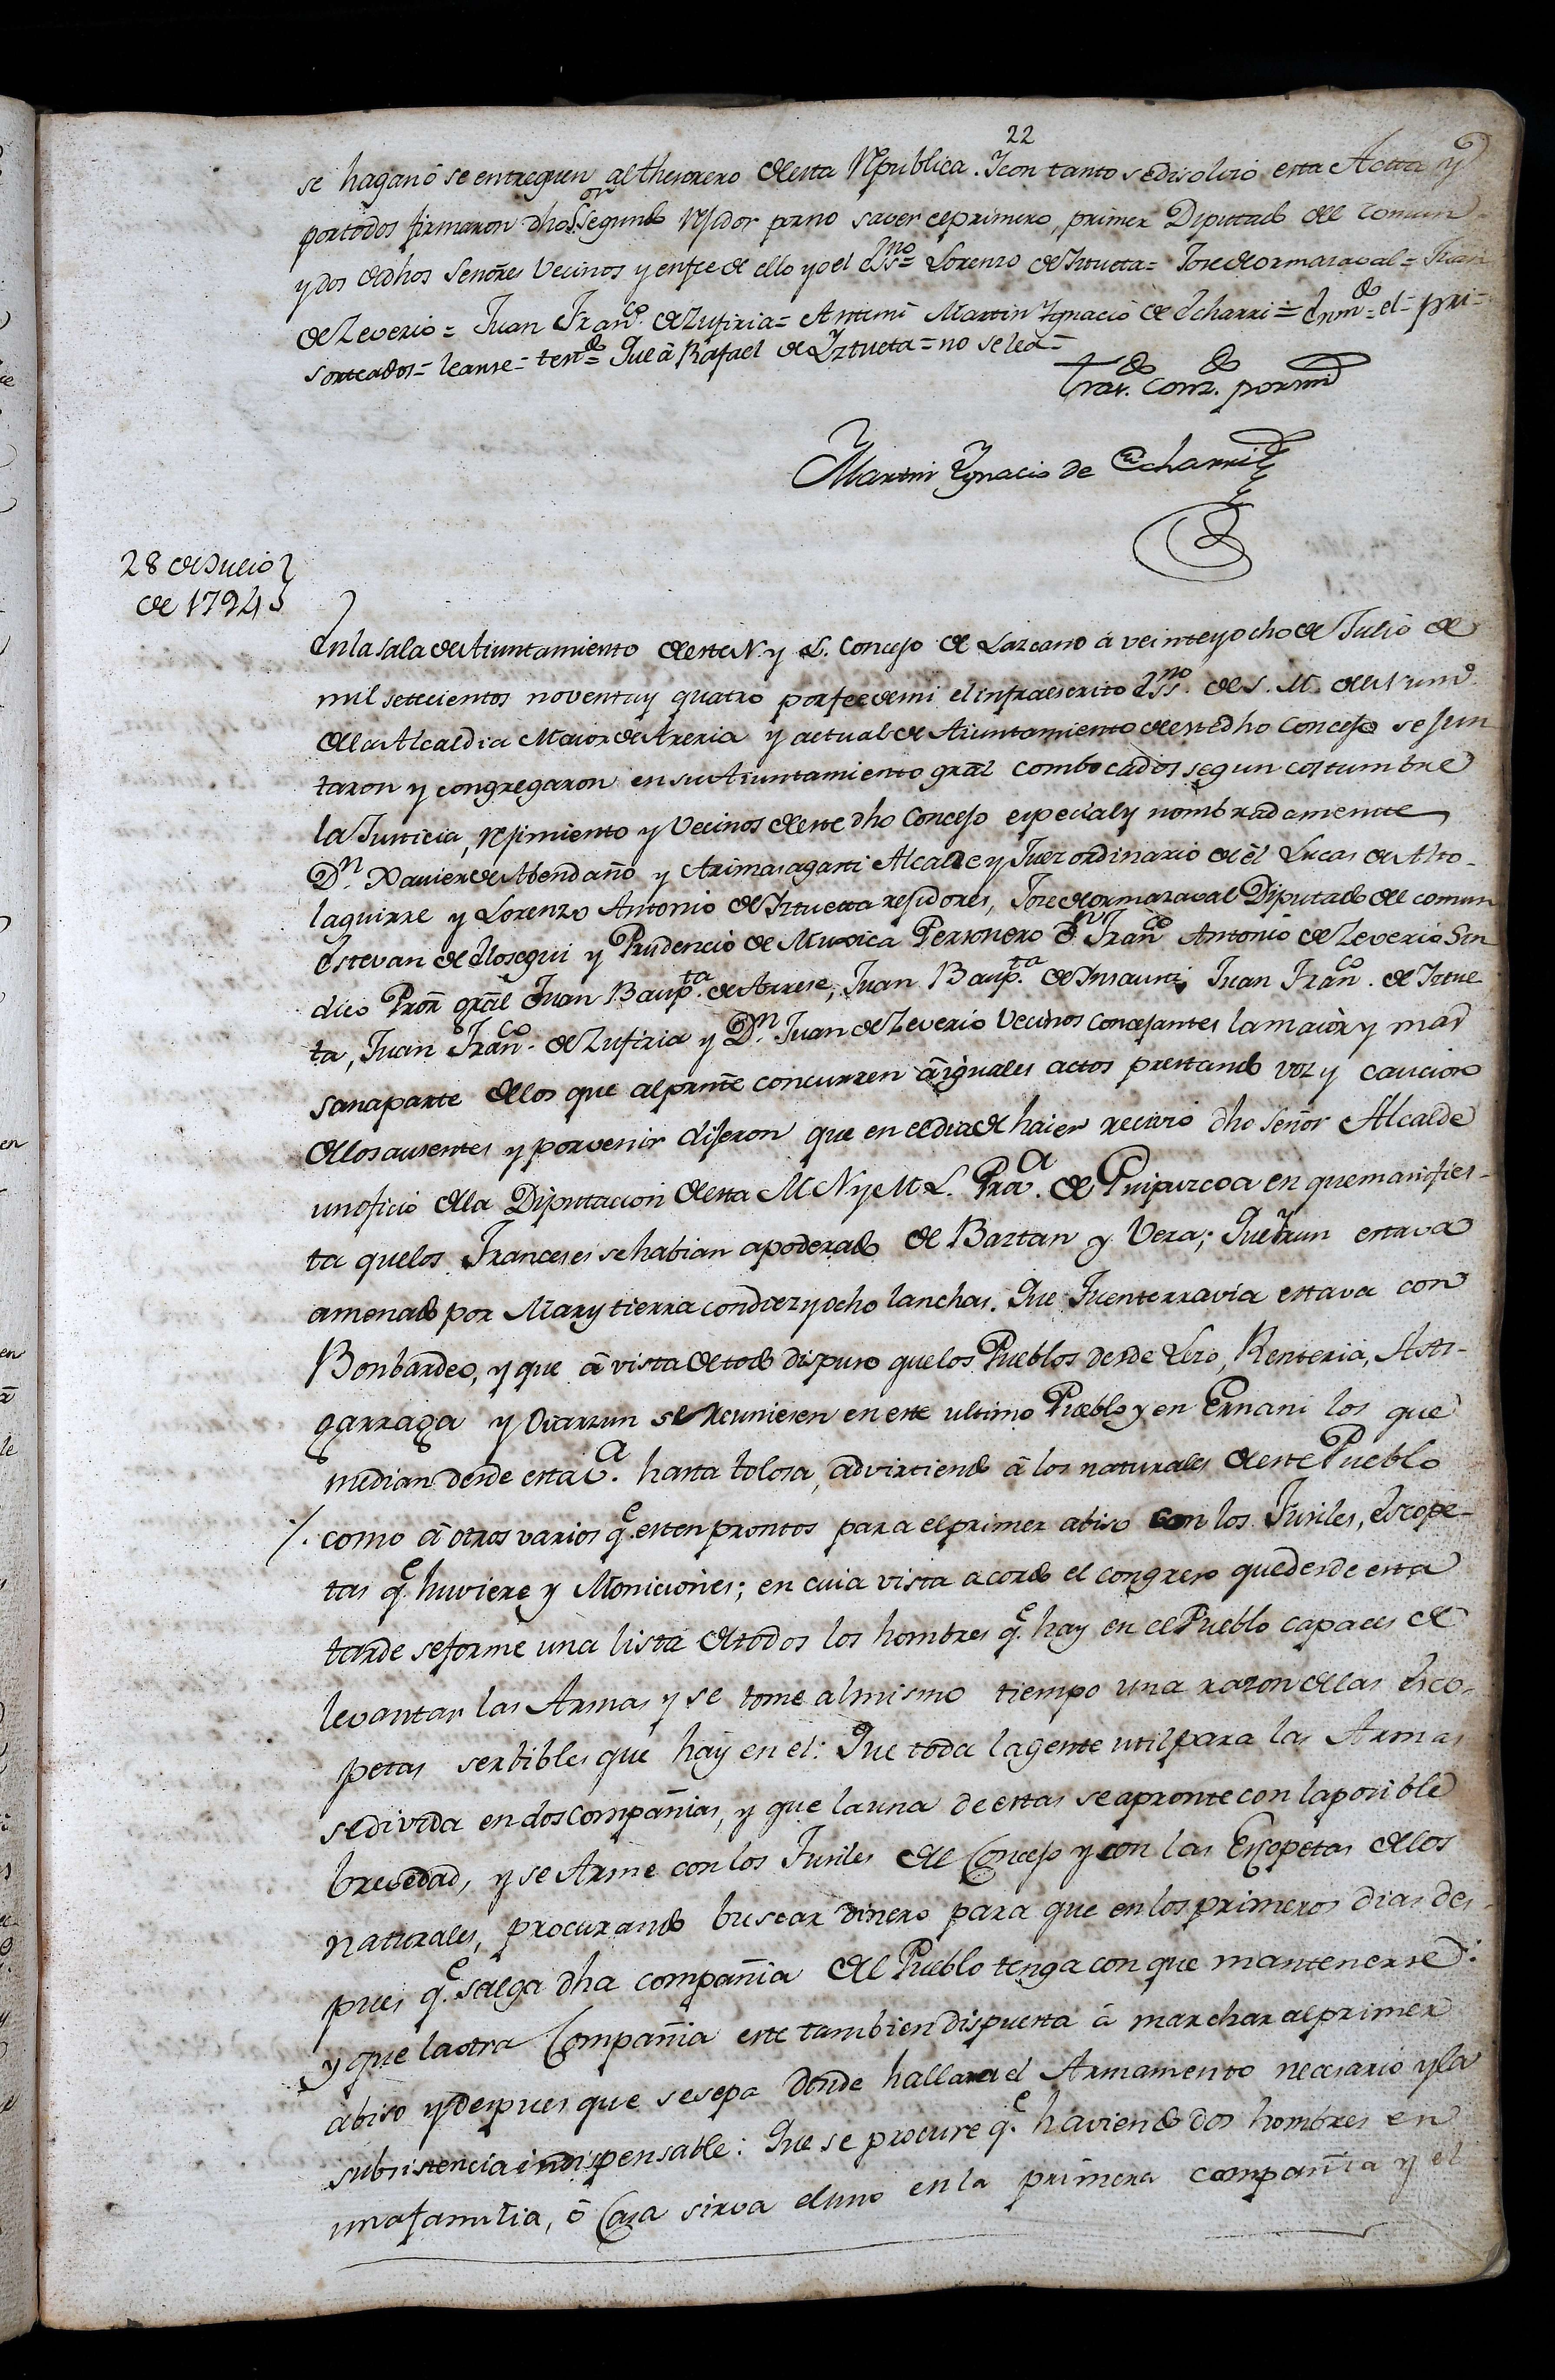 22
se hagan ô se entreguen al thesorero de esta Republica. Y con tanto se disolvio esta Acta y
por todos firmaron dhos Sor segundo Rejidor por no saver el primero, primer Diputado del Comun
y dos de dhos Señores Vecinos y en fee de ello yo el Essno = Lorenzo de Iztueta = Jose de ormazaval = Juan
de Zeverio = Juan Franco. de Zufiria = Antemi Martin Ygnacio de Echarri = Enmdo = el = pri =
sorteados = leanse = tendo = Que â Rafael de Yztueta = no se lea =
Tras.do Conz.do por mi
Martin Ygnacio de Echarri
28 de Julio
de 1794
En la sala de Aiuntamiento de este N. y L. Concejo de Lazcano â veinte y ocho de Julio de
mil setecientos noventa y quatro por fee de mi el infraescrito Essno. de S. M. del Numo.
de la Alcaldia Maior de Areria y actual de Aiuntamiento de este dho Concejo se jun
taron y congregaron en su Aiuntamiento gral combocados segun costumbre
la Justicia, rejimiento y Vecinos de este dho Concejo especial y nombradamente
Dn. Xavier de Abendaño y Arimasagasti Alcalde y Juez ordinario de êl Lucas de Alto-
laguirre y Lorenzo Antonio de Iztueta rejidores, Jose de ormazaval Diputado del comun
Estevan de Elosegui y Prudencio de Muxica Personero Dn Franco Antonio de Zeverio Sin
dico Pror gral Juan Baupta. de Arrese, Juan Baupta. de Insausti, Juan Franco. de Iztue
ta, Juan Franco. de Zufiria y Dn. Juan de Zeverio Vecinos Concejantes la maior y mas
sana parte de los que al presnte concurren â iguales actos prestando voz y caucion
de los ausentes y por venir dijeron que en el dia de haier recivio dho señor Alcalde
un oficio de la Diputacion de esta M N y M L. Pra.a de Guipuzcoa en que manifies-
ta que los Franceses se habian apoderado de Baztan y Vera; Que Yrun estava
amenado por Mar y tierra con diez y ocho lanchas. Que Fuenterravia estava con
Bonbardeo, y que â vista de todo dispuso que los Pueblos desde Lezo, Renteria, Asti-
garraga y Oiarzun se Reuniesen en este ultimo Pueblo y en Ernani los que
median desde esta Va. hasta tolosa, advirtiendo â los naturales de este Pueblo
/. como â otros varios qe. esten prontos para el primer abiso con los Fusiles, Escope-
tas qe. huviere y Moniciones; en cuia vista acordo el congreso que desde esta
tarde se forme una lista de todos los hombres qe. hay en el Pueblo capaces de
levantar las Armas y se tome al mismo tiempo una razon de las Esco-
petas serbibles que hay en el: Que toda la gente util para las Armas
se divida en dos Compañias, y que la una de estas se apronte con la posible
brevedad, y se Arme con los Fusiles del Concejo y con las Escopetas de los
naturales, procurando buscar dinero para que en los primeros dias des-
pues qe. salga dha compañia del Pueblo tenga con que mantenerse:
y que la otra Compañia este tambien dispuesta â marchar al primer
abiso y despues que se sepa donde hallara el Armamento necesario y la
subsistencia indispensable: Que se procure qe. haviendo dos hombres en
una familia, ô Casa sirva el uno en la primera compañia y el